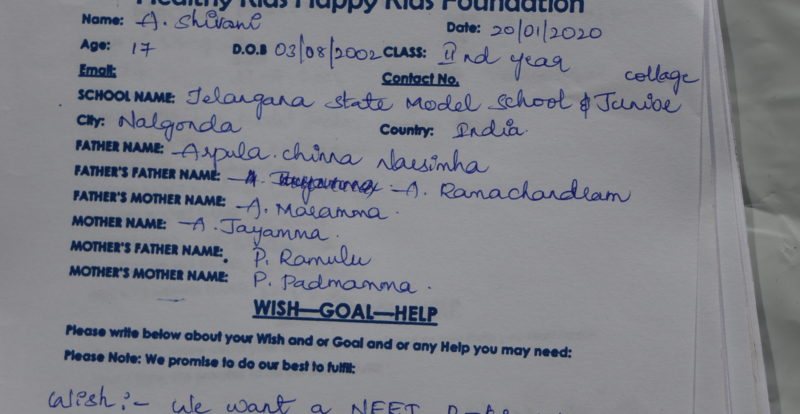 Healthy Kids Happy Kids Foundation
Name: A. Shivani Date: 20/01/2020
Age: 17 D.O.B 03/08/2002 CLASS: IInd year
Email: Contact No. collage
SCHOOL NAME: Telangana State Model School & Junioe
City: Nalgonda Country: India.
FATHER NAME: Arpula. chinna Narsimha
FATHER'S FATHER NAME: A. Ramachandram
FATHER'S MOTHER NAME: A. Maramma.
MOTHER NAME: A. Jayamma.
MOTHER'S FATHER NAME: P. Ramulu
MOTHER'S MOTHER NAME: P. Padmamma.
WISH—GOAL—HELP
Please write below about your Wish and or Goal and or any Help you may need:
Please Note: We promise to do our best to fulfill:
Wish :- We want a NEET